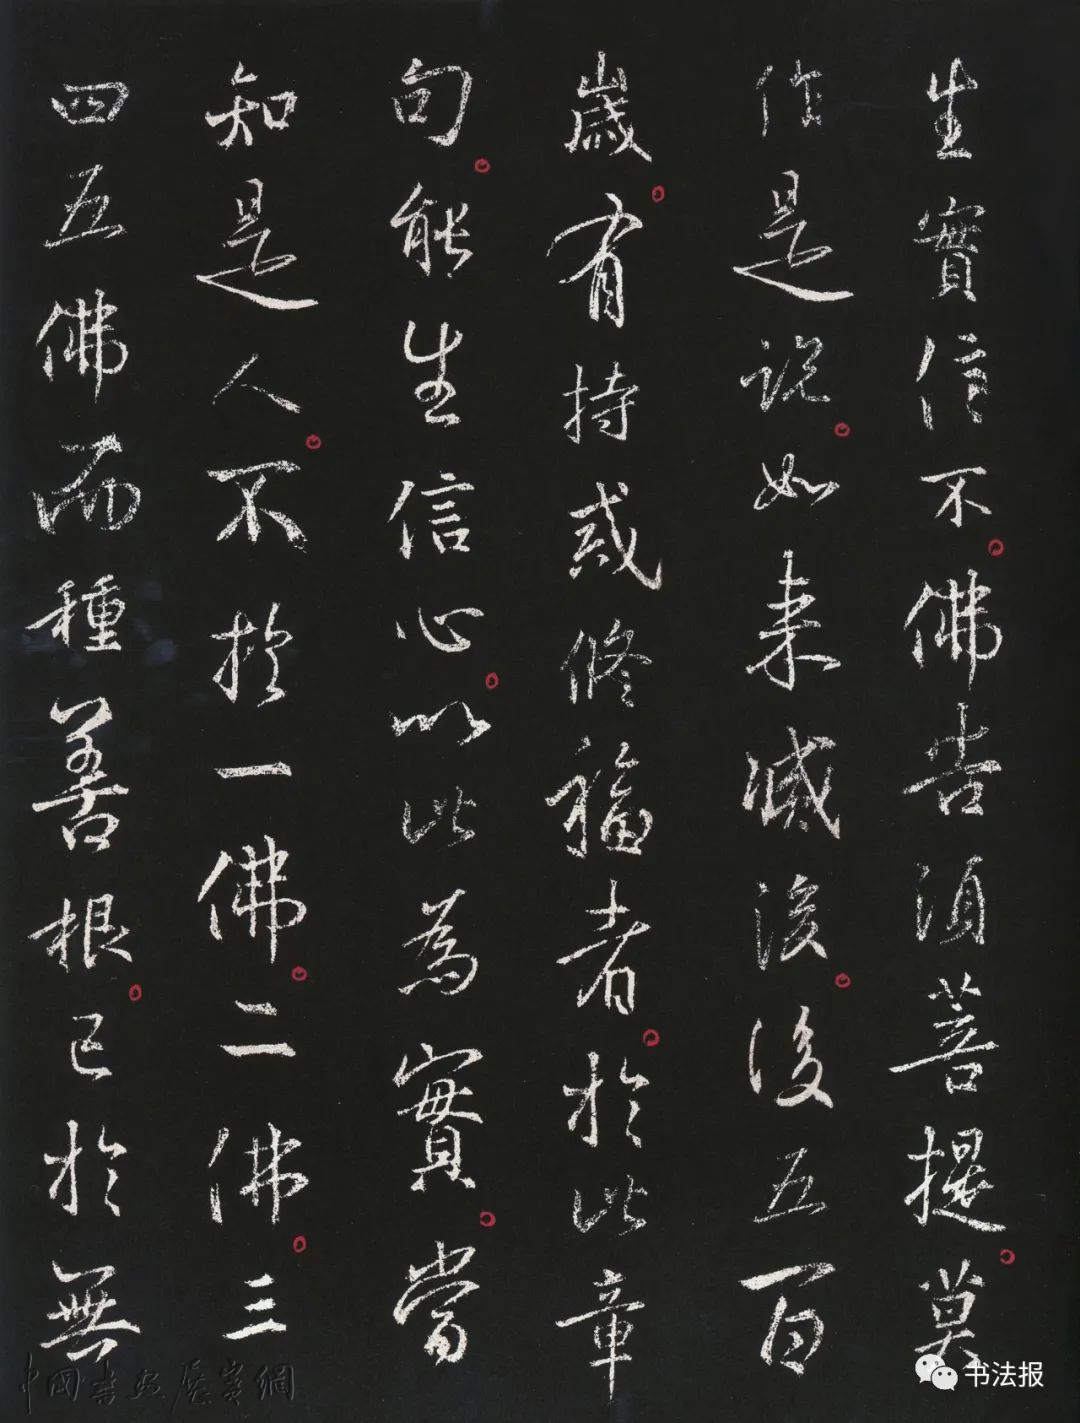 生實信不。佛告須菩提。莫
作是説。如来滅後。後五百
歲。有持戒修福者。於此章
句。能生信心。以此為實。當
知是人。不於一佛。二佛。三
四五佛而種善根。已於無
中國書畫展賽網
书法报